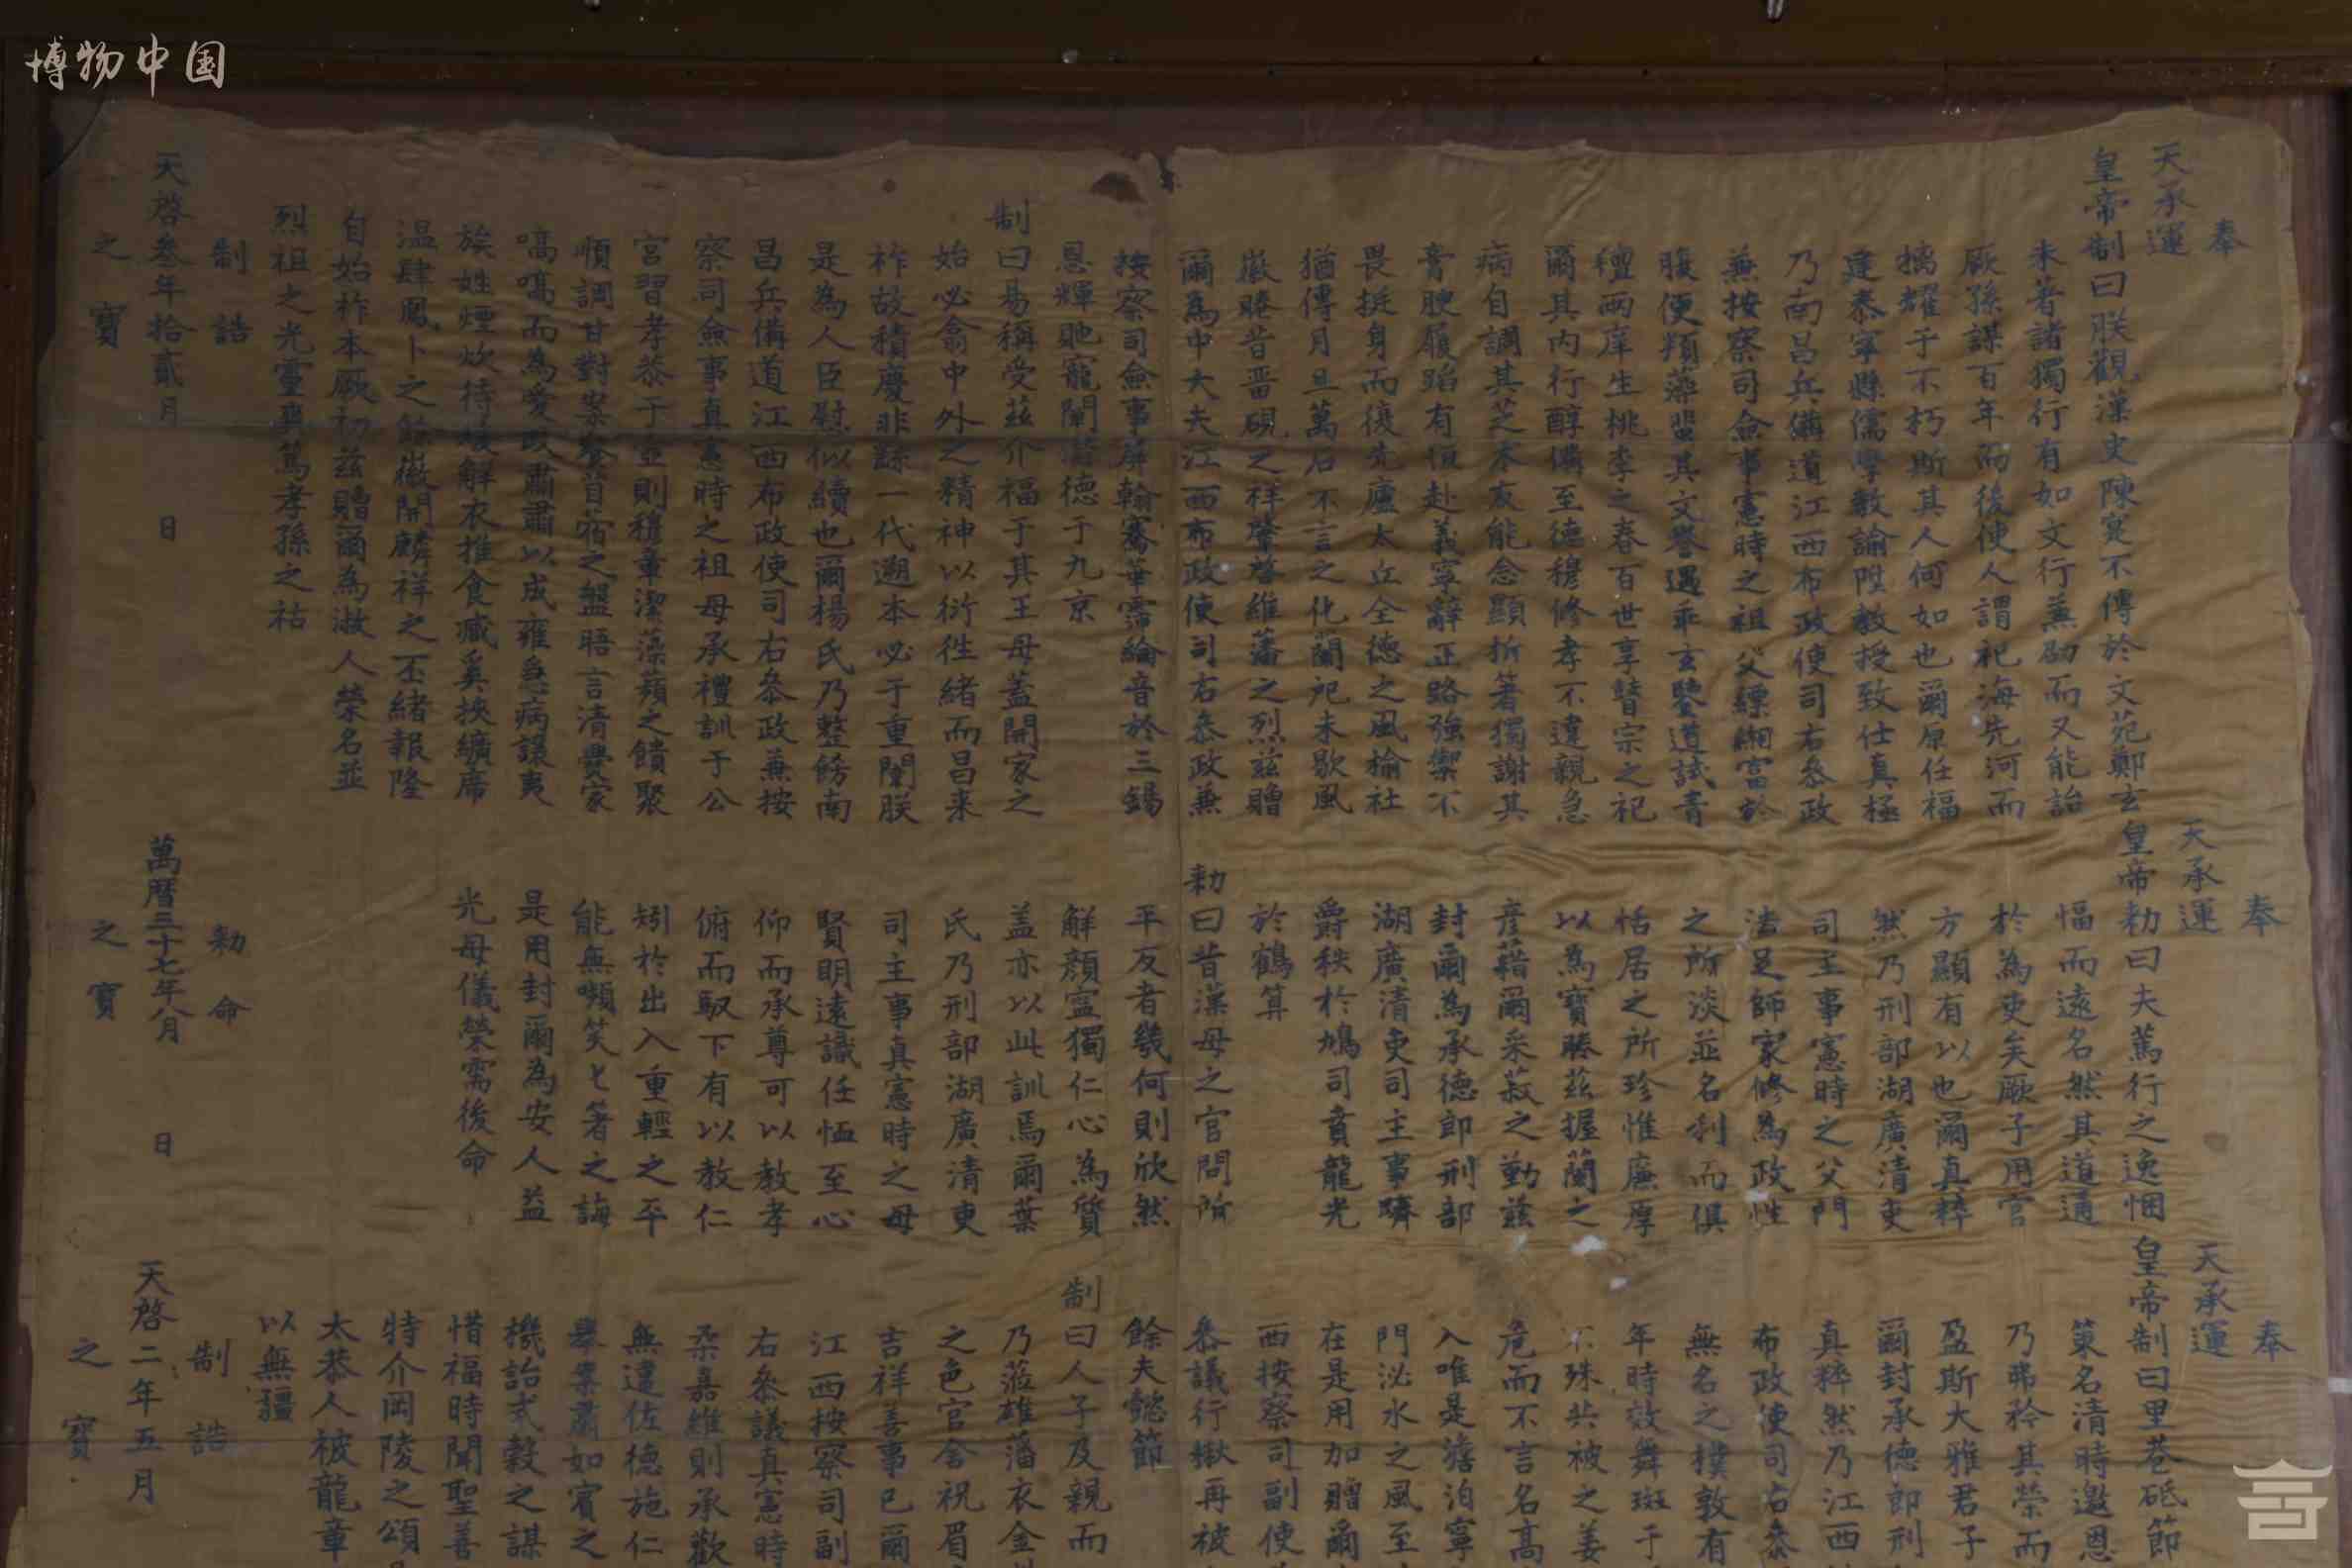 博物中国
奉
天承運
皇帝制曰朕觀漢史陳寔不傳於文苑鄭玄
未著諸獨行有如文行兼劭而又能詒
厥孫謀百年而後使人謂祀海先河而
摛耀于不朽斯其人何如也爾原任福
建泰寧縣儒學教諭陞教授致仕真極
乃南昌兵備道江西布政使司右叅政
兼按察司僉事憲時之祖父縹緗富於
腹便頖藻蜚其文譽遇乖玄鑒道試青
氊兩庠生桃李之春百世享瞽宗之祀
爾其内行醇備至德穆修孝不違親急
病自調其芝朮友能念顯析箸獨謝其
膏腴履蹈有恒赴義寧辭正路強禦不
畏挺身而復先廬太丘全德之風榆社
猶傳月旦萬石不言之化蘭祀未歇風
徽睠昔晋硯之祥肇啓維藩之烈兹贈
爾為中大夫江西布政使司右叅政兼
按察司僉事屏翰騫華霈綸音於三錫
恩輝貤寵闡潛德于九京
制曰易稱受兹介福于其王母蓋開家之
始必翕中外之精神以衍徃緒而昌来
祚故積慶非繇一代遡本必于重闈朕
是為人臣慰似續也爾楊氏乃整飭南
昌兵備道江西布政使司右叅政兼按
察司僉事真憲時之祖母承禮訓于公
宫習孝恭于壼則穫章潔藻蘋之饋聚
順調甘對案餐苜蓿之盤晤言清釁家
嗃嗃而為愛以肅肅以成雍急病讓夷
族姓煙炊待煖解衣推食臧奚挾纊席
温肆鳳卜之餘徽開麟祥之丕緒報隆
自始祚本厥初兹贈爾為淑人榮名並
烈祖之光靈爽篤孝孫之祜
制誥
天啓叁年拾貳月 日
之寶
奉
天承運
皇帝勑曰夫篤行之逸悃
愊而遠名然其道通
於為吏矣厥子用官
方顯有以也爾真粹
然乃刑部湖廣清吏
司主事憲時之父門
法足師家修為政性
之所淡並名利而俱
恬居之所珍惟廉厚
以為寶勝兹握蘭之
彦藉爾采菽之勤兹
封爾為承德郎刑部
湖廣清吏司主事躋
爵秩於鳩司賁龍光
於鶴算
勑曰昔漢母之官問所
平反者幾何則欣然
解顔寔獨仁心為質
盖亦以此訓焉爾葉
氏乃刑部湖廣清吏
司主事真憲時之母
賢明遠識任恤至心
仰而承尊可以教孝
俯而馭下有以教仁
矧於出入重輕之平
能無嚬笑匕箸之誨
是用封爾為安人益
光母儀榮需後命
勑命
萬曆三十七年八月 日
之寶
奉
天承運
皇帝制曰里巷砥節
策名清時邀恩
乃弗矜其榮而
盈斯大雅君子
爾封承德郎刑
真粹然乃江西
布政使司右叅
無名之樸敦有
年時效舞斑于
不殊共被之姜
危而不言名髙
入唯是澹泊寧
門泌水之風至
在是用加贈爾
西按察司副使
叅議行楸再被
餘夫懿節
制曰人子及親而
乃蒞雄藩衣金
之色官舍祝眉
吉祥善事已爾
江西按察司副
右叅議真憲時
柔嘉維則承歡
無違佐德施仁
舉案肅如賓之
機詒式穀之謀
惜福時聞聖善
特介岡陵之頌
太恭人被龍章
以無疆
制誥
天啓二年五月
之寶